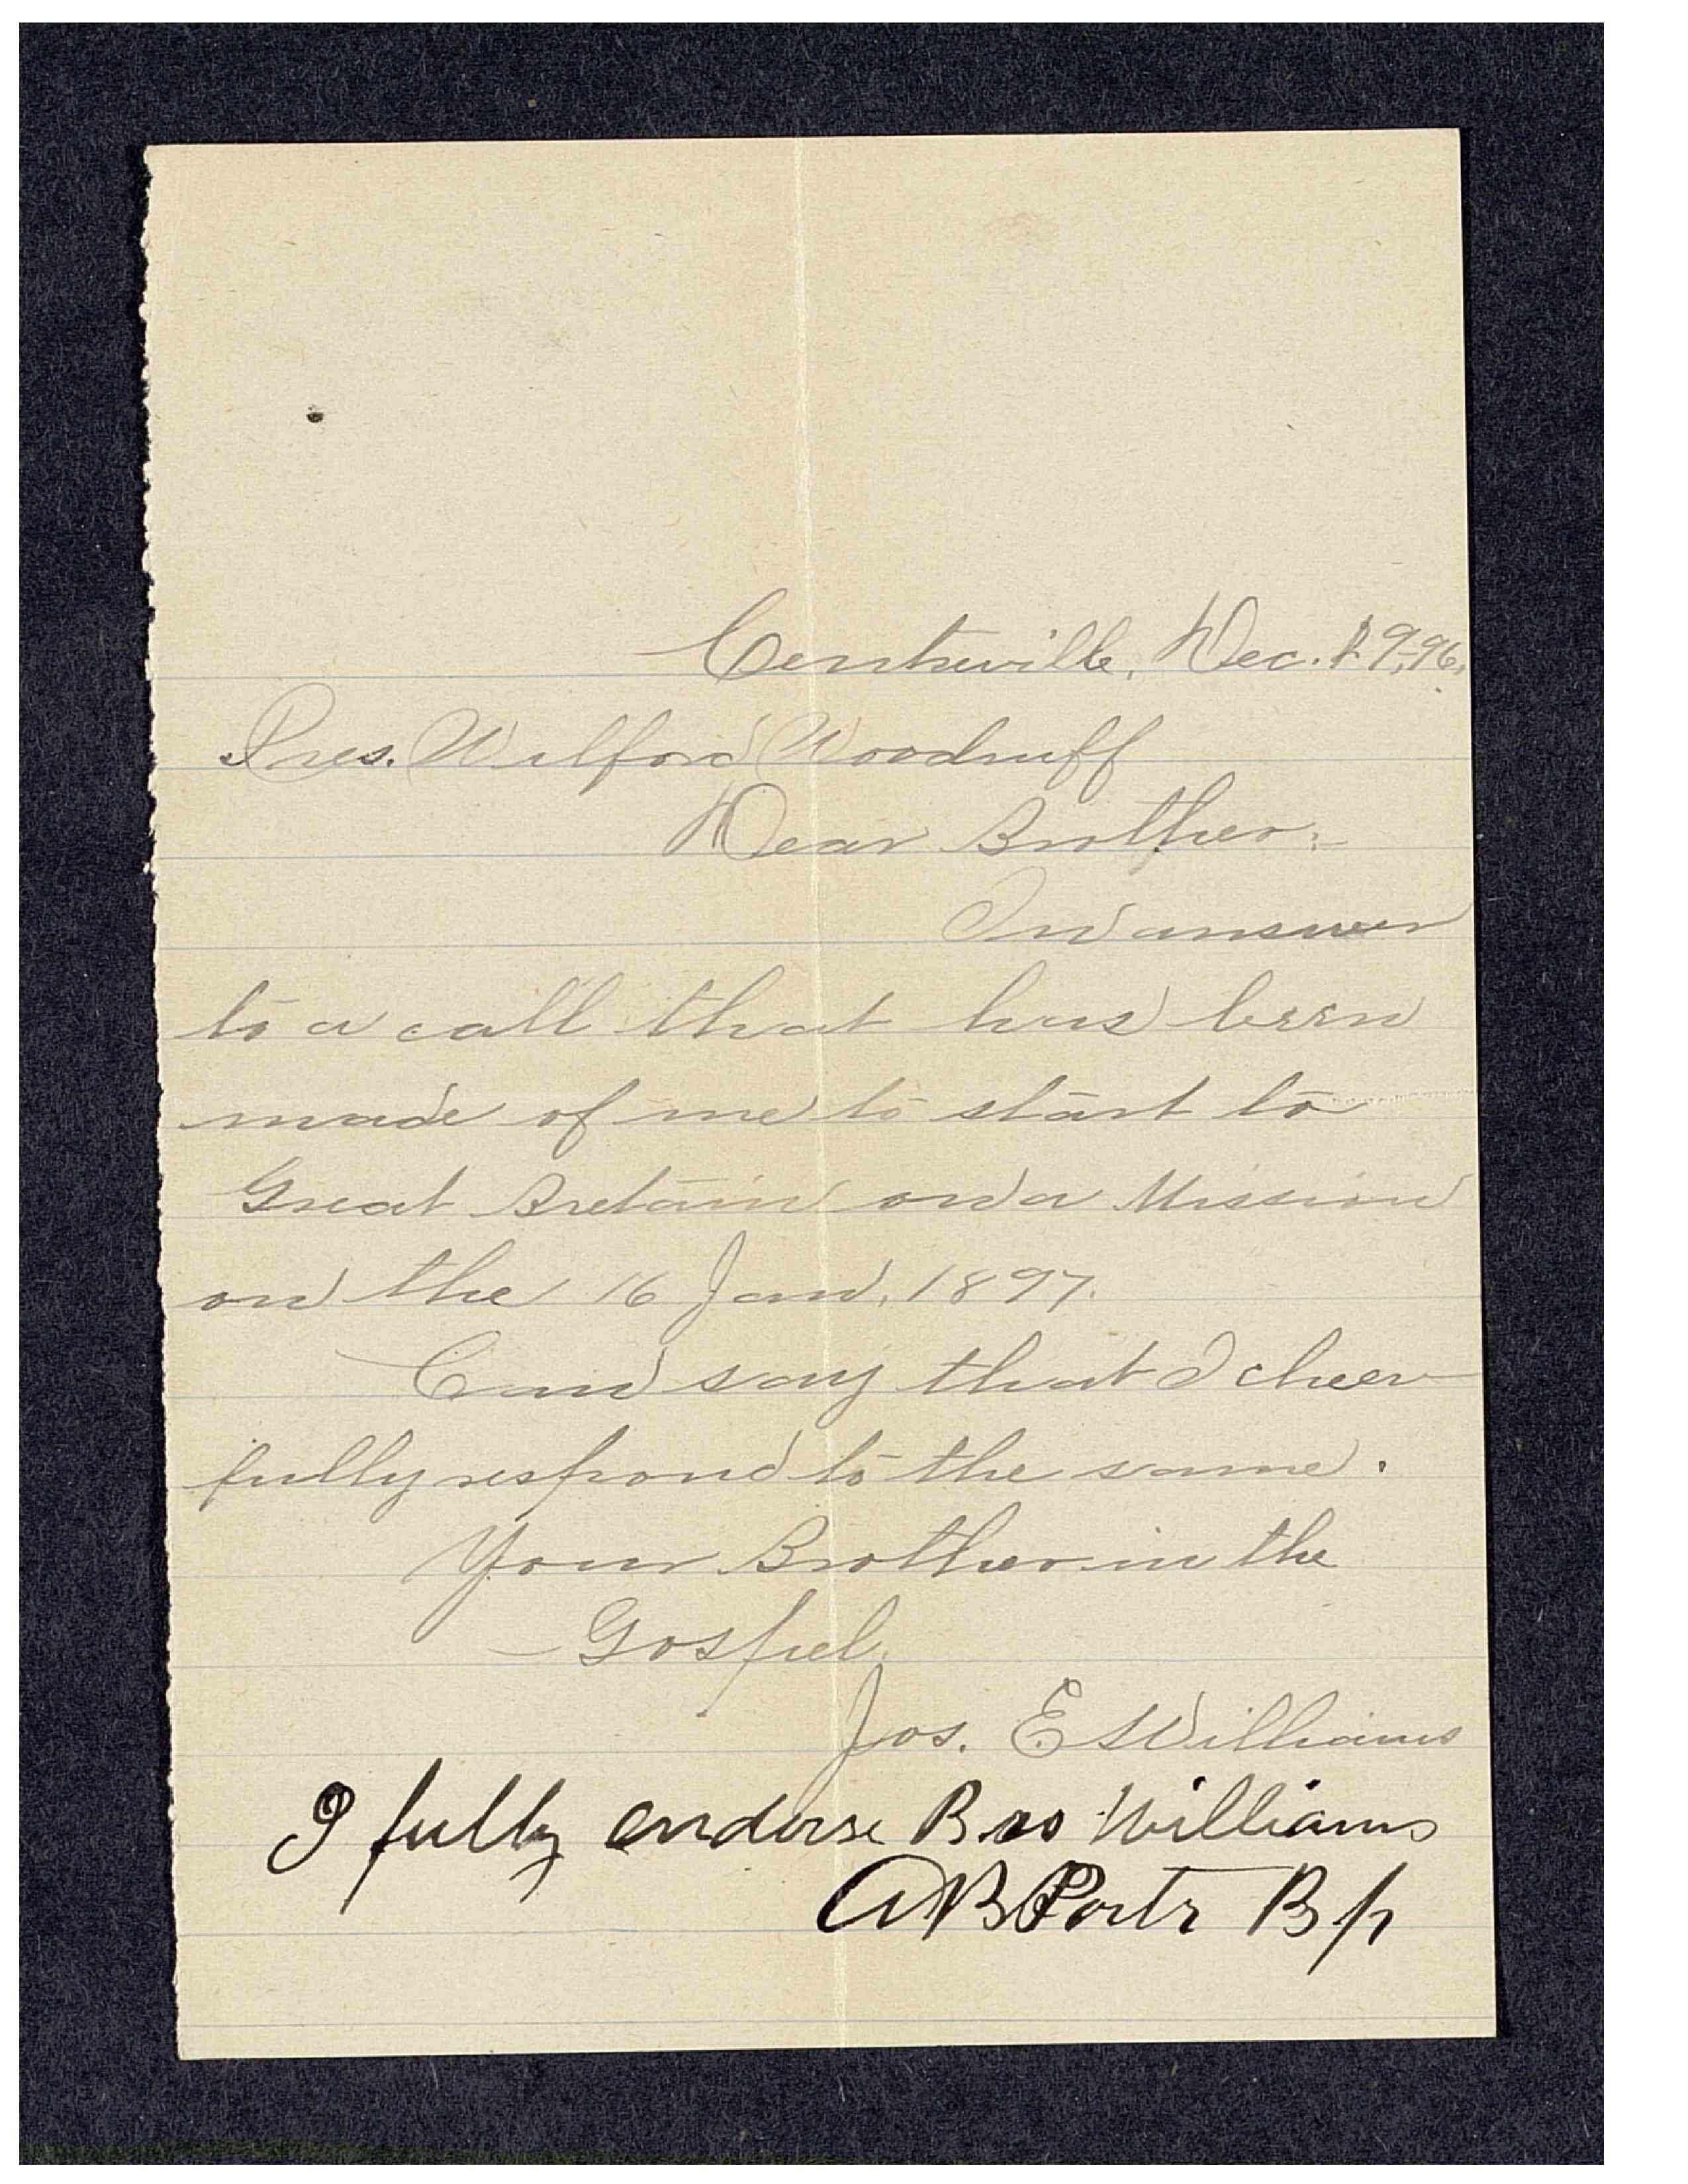 Centerville, Dec. 9, 96.
Pres. Wilford Woodruff
Dear Brother:
In answer
to a call that has been
made of me to start to
Great Bretain on a Mission
on the 16 Jan. 1897.
Can say that I cheer
fully respond to the same.
Your Brother in the
Gospel.
Jos. E. Williams
I fully endorse Bro Williams
A B Portr Bp